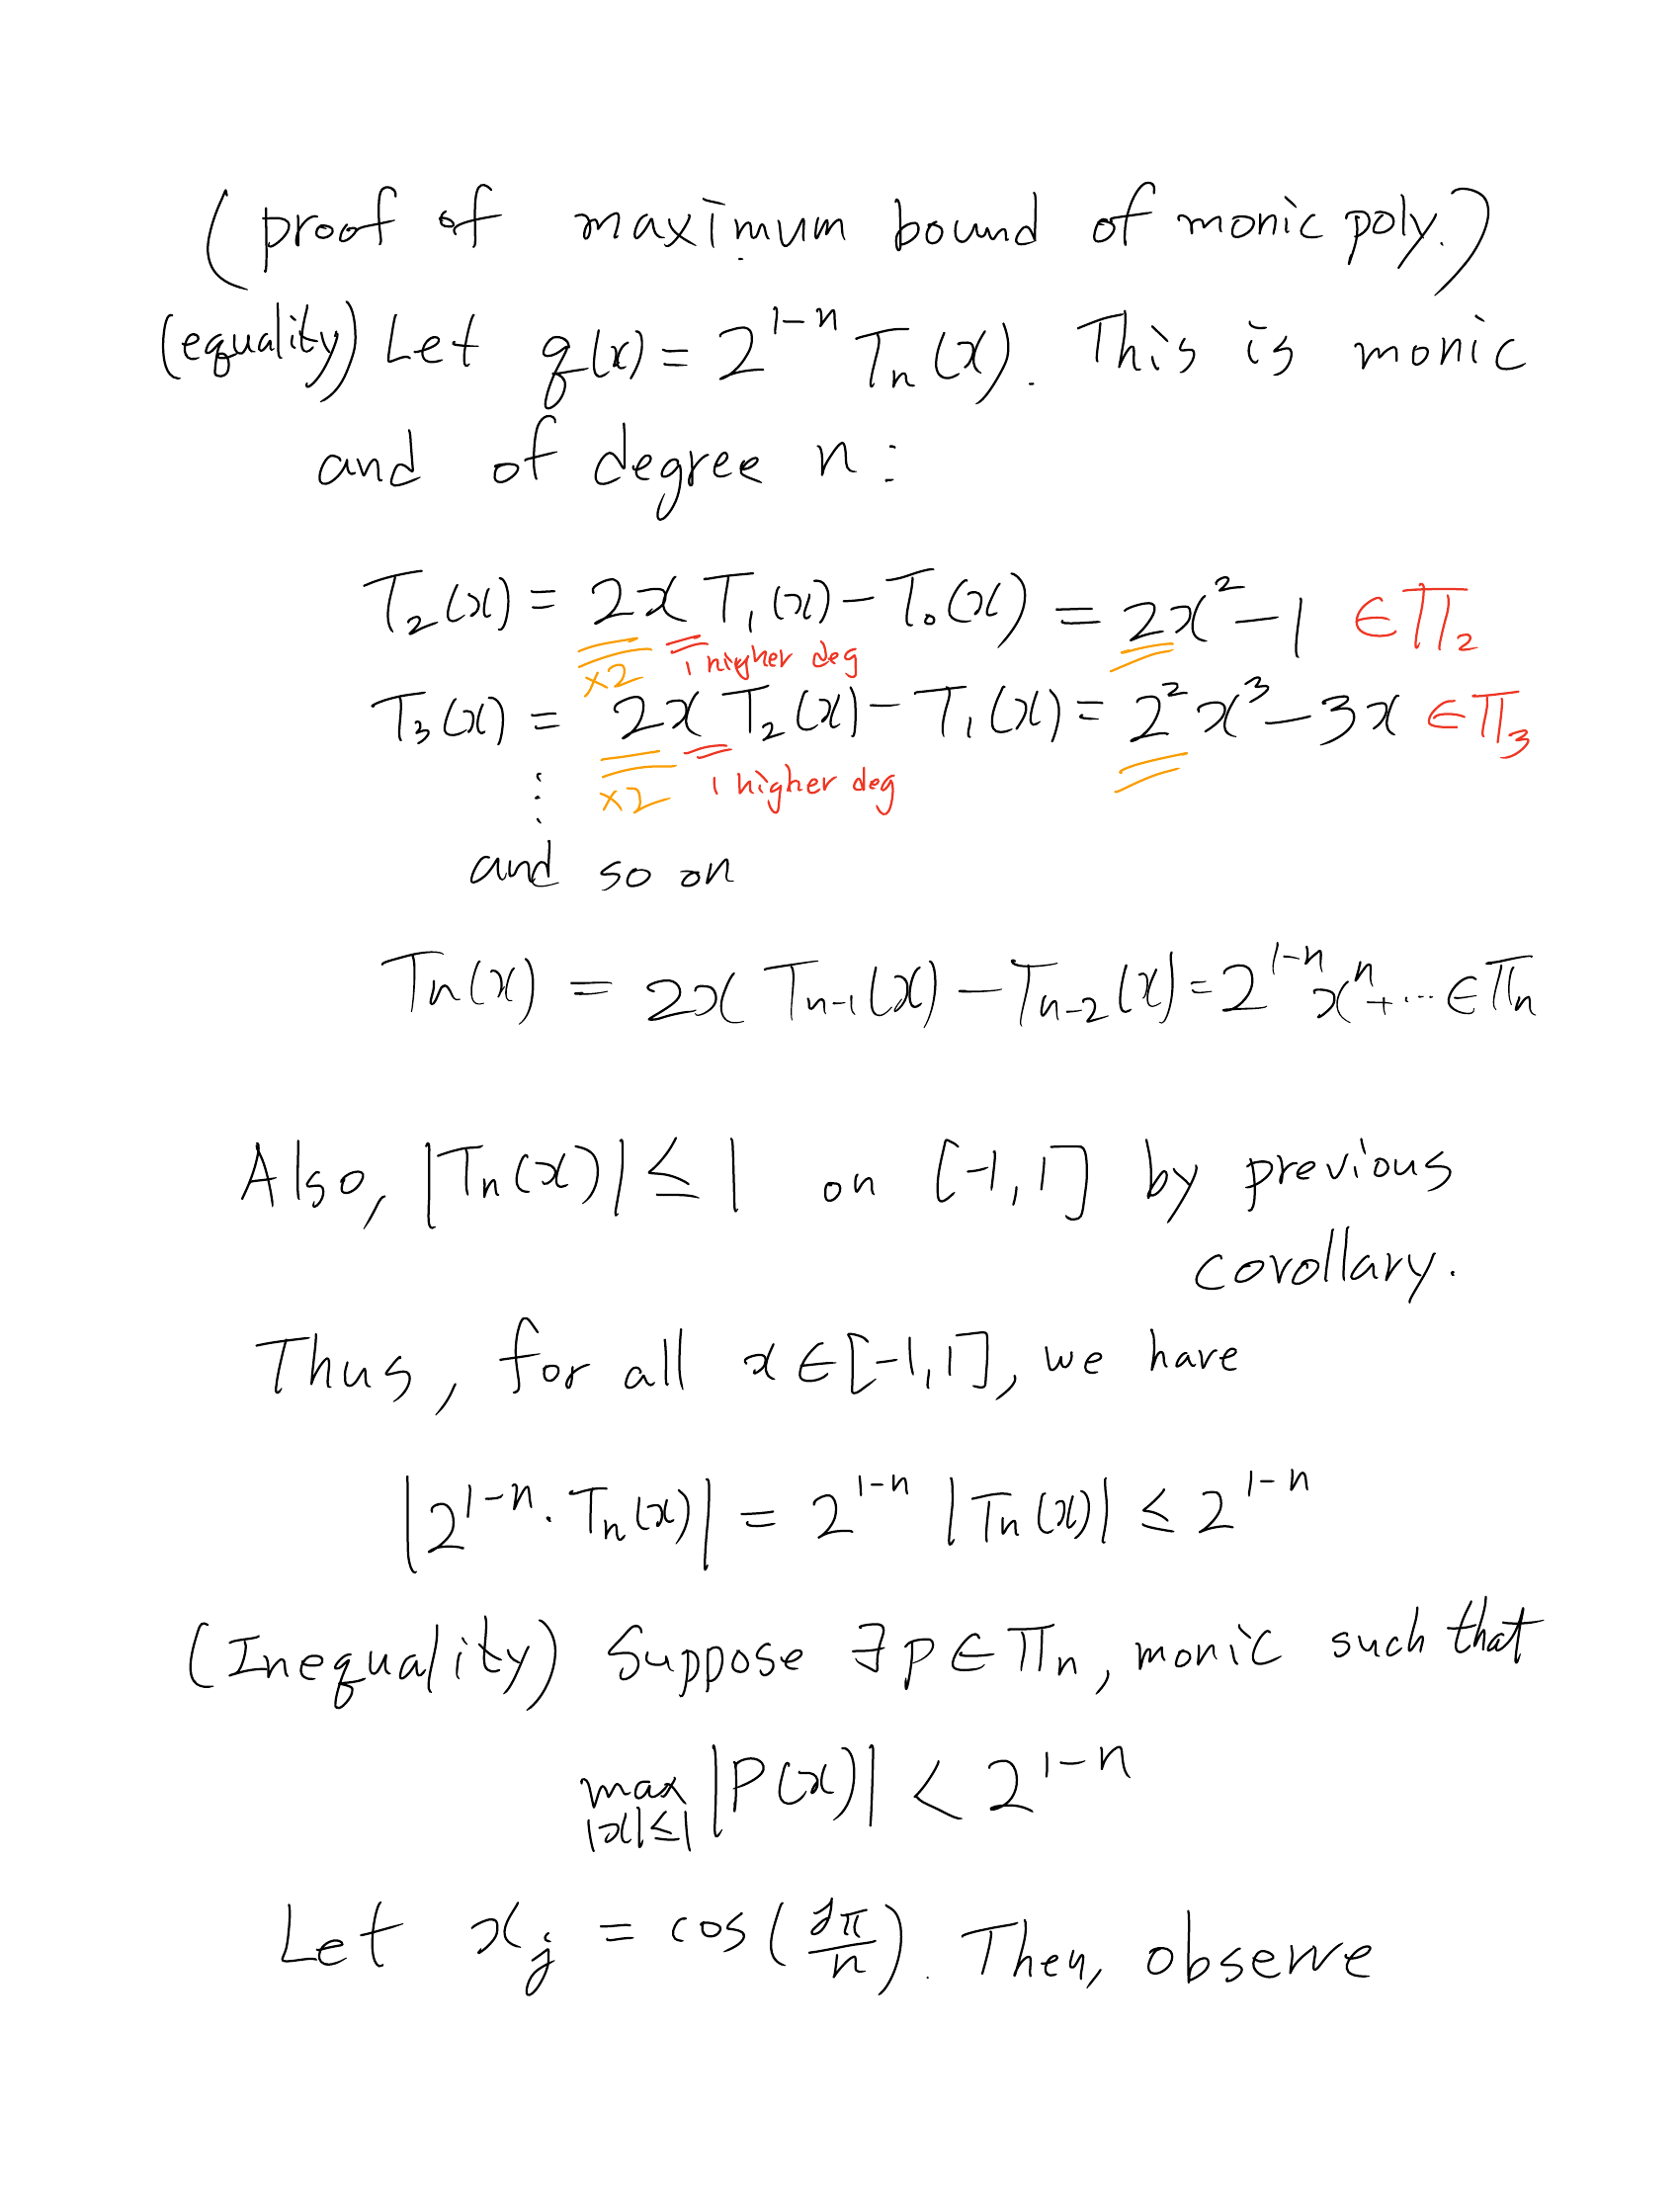 (proof of maximum bound of monic poly.)
(equality) Let q(x) = 2^{1-n} T_n(x). This is monic
and of degree n:
T_2(x) = 2x T_1(x) - T_0(x) = 2x^2 - 1 ∈ Π_2
×2 1 higher deg
T_3(x) = 2x T_2(x) - T_1(x) = 2^2 x^3 - 3x ∈ Π_3
×2 1 higher deg
⋮
and so on
T_n(x) = 2x T_{n-1}(x) - T_{n-2}(x) = 2^{1-n} x^n + ... ∈ Π_n
Also, |T_n(x)| ≤ 1 on [-1, 1] by previous
corollary.
Thus, for all x ∈ [-1, 1], we have
|2^{1-n} · T_n(x)| = 2^{1-n} |T_n(x)| ≤ 2^{1-n}
(Inequality) Suppose ∃ p ∈ Π_n, monic such that
max_{|x|≤1} |P(x)| < 2^{1-n}
Let x_j = cos(jπ/n). Then, observe